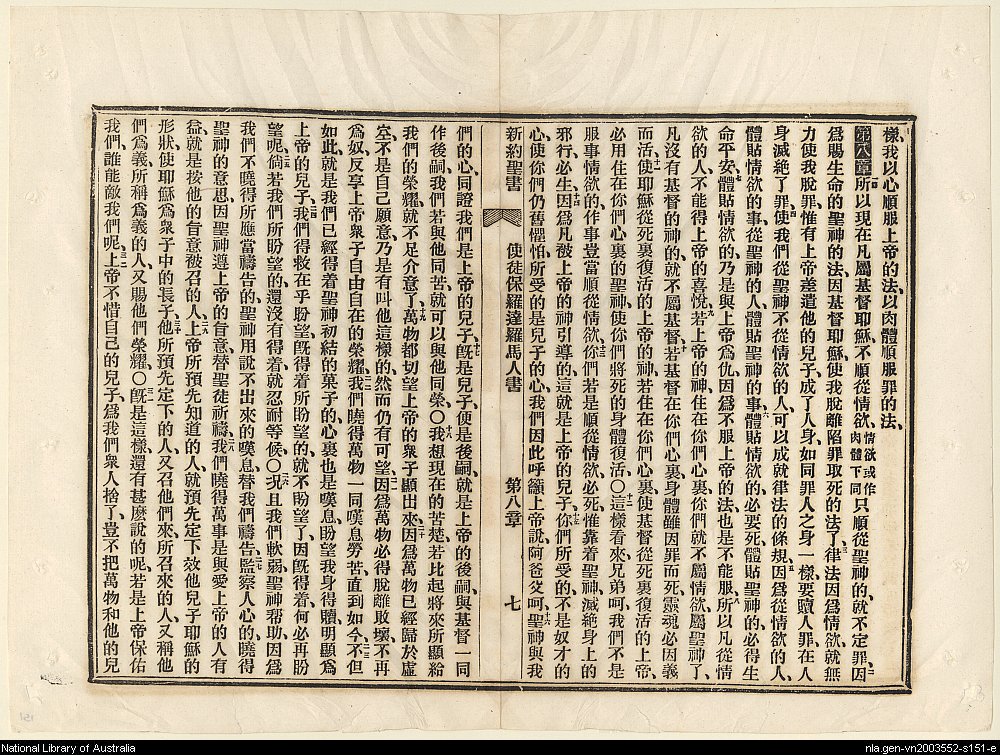 樣、我以心順服上帝的法、以肉體順服罪的法、
第八章所以現在凡屬基督耶穌、不順從情欲、情欲或作肉體下同只順從聖神的、就不定罪、二因
爲賜生命的聖神的法、因基督耶穌、使我脫離陷罪取死的法了、三律法因爲情欲、就無
力使我脫罪、惟有上帝差遣他的兒子、成了人身、如同罪人之身一樣、要贖人罪、在人
身、滅絕了罪、四使我們從聖神、不從情欲的人、可以成就律法的條規、五因爲從情欲的人、
體貼情欲的事、從聖神的人、體貼聖神的事、六體貼情欲的、必要死、體貼聖神的、必得生
命平安、七體貼情欲的、乃是與上帝爲仇、因爲不服上帝的法、也是不能服、八所以凡從情
欲的人、不能得上帝的喜悅、九若上帝的神、住在你們心裏、你們就不屬情欲、屬聖神了、
凡沒有基督的神的、就不屬基督、十若基督在你們心裏、身體雖因罪而死、靈魂必因義
而活、十一使耶穌從死裏復活的上帝的神、若住在你們心裏、使基督從死裏復活的上帝、
必用住在你們心裏的聖神、使你們將死的身體復活、〇十二這樣看來、兄弟呵、我們不是
服事情欲的、作事豈當順從情欲、十三你們若是順從情欲必死、惟靠着聖神、滅絕身上的
邪行必生、十四因爲凡被上帝的神引導的、這就是上帝的兒子、十五你們所受的、不是奴才的
心、使你們仍舊懼怕、所受的是兒子的心、我們因此呼籲上帝說、阿爸父呵、十六聖神與我
新約聖書 使徒保羅達羅馬人書 第八章 七
們的心、同證我們是上帝的兒子、十七旣是兒子、便是後嗣、就是上帝的後嗣、與基督一同
作後嗣、我們若與他同苦、就可以與他同榮、〇十八我想現在的苦楚、若比起將來所顯給
我們的榮耀、就不足介意了、十九萬物都切望上帝的衆子顯出來、二十因爲萬物已經歸於虛
空、不是自己願意、乃是有叫他這樣的、然而仍有可望、二一因爲萬物必得脫離敗壞、不再
爲奴、反享上帝衆子自由自在的榮耀、二二我們曉得萬物一同嘆息勞苦、直到如今、二三不但
如此、就是我們已經得着聖神初結的菓子的、心裏也是嘆息、盼望我身得贖、明顯爲
上帝的兒子、二四我們得救在乎盼望、旣得着所盼望的、就不盼望了、因旣得着何必再盼
望呢、二五倘若我們所盼望的、還沒有得着、就忍耐等候、〇二六况且我們軟弱、聖神帮助、因爲
我們不曉得所應當禱告的、聖神用說不出來的嘆息、替我們禱告、二七監察人心的、曉得
聖神的意思、因聖神遵上帝的旨意、替聖徒祈禱、二八我們曉得萬事是與愛上帝的人有
益、就是按他的旨意被召的人、二九上帝所預先知道的人、就預先定下效他兒子耶穌的
形狀、使耶穌爲衆子中的長子、三十他所預先定下的人、又召他們來、所召來的人、又稱他
們爲義、所稱爲義的人、又賜他們榮耀、〇三一旣是這樣、還有甚麽說的呢、若是上帝保佑
我們、誰能敵我們呢、三二上帝不惜自己的兒子、爲我們衆人捨了、豈不把萬物和他的兒
National Library of Australia
nla.gen-vn2003552-s151-e